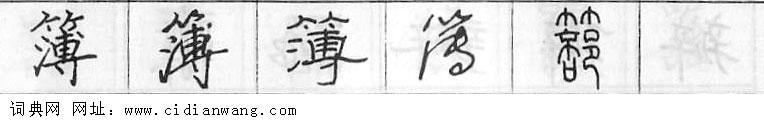 簿 簿 簿 簿 䈏
词典网 网址：www.cidianwang.com